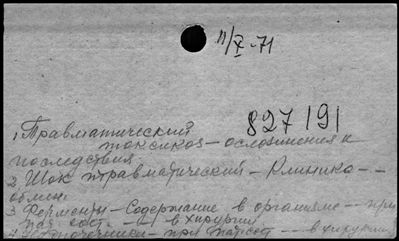 11/X-71
827191
1. Травматический
токсикоз - осложнения и
последствия
2. Шок травматический - Клиника --
обмен.
3. Ферменты - Содержание в организме -- при
в хирургии
4. при -- в хирургии